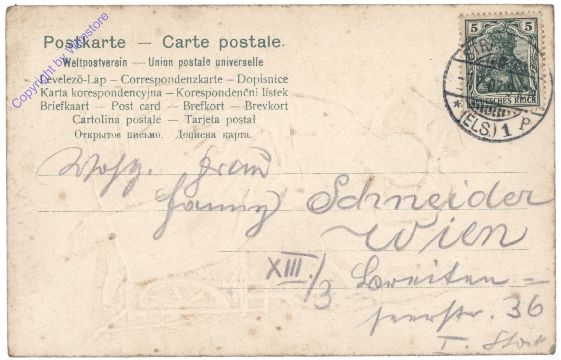 Postkarte — Carte postale.
Weltpostverein — Union postale universelle
Levelező-Lap — Correspondenzkarte — Dopisnice
Karta korespondencyjna — Korespondenční lístek
Briefkaart — Post card — Brefkort — Brevkort
Cartolina postale — Tarjeta postal
Открытое письмо. Дописна карта.
Copyright by
5 5
DEUTSCHES REICH
STRA
* (ELS.) 1 P
Wohlg. Frau
Fanny Schneider
Wien
XIII./3 Breiten=
seerstr. 36
I. Stock